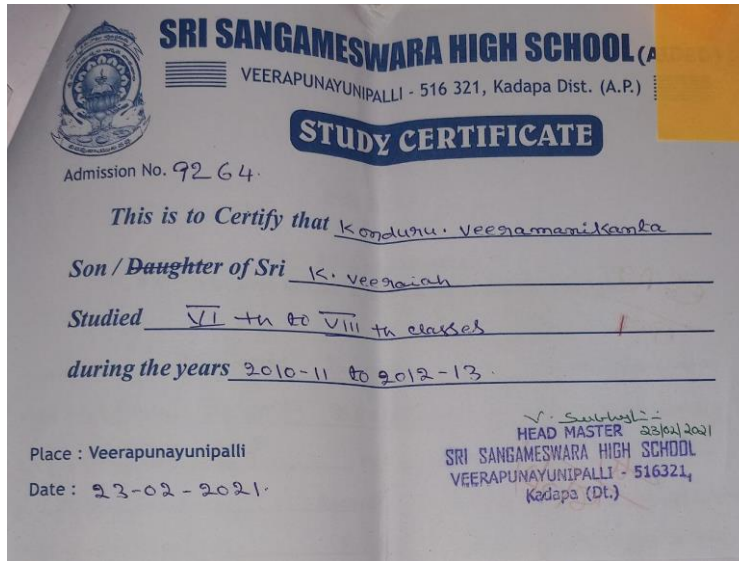 SRI SANGAMESWARA HIGH SCHOOL (A
VEERAPUNAYUNIPALLI - 516 321, Kadapa Dist. (A.P.)
STUDY CERTIFICATE
Admission No. 9264.
This is to Certify that Konduru. Veeramanikanta
Son / Daughter of Sri K. Veeraiah
Studied VI th to VIII th classes
during the years 2010-11 to 2012-13.
Place : Veerapunayunipalli
Date : 23-02-2021.
23/02/2021
HEAD MASTER
SRI SANGAMESWARA HIGH SCHOOL
VEERAPUNAYUNIPALLI - 516321,
Kadapa (Dt.)